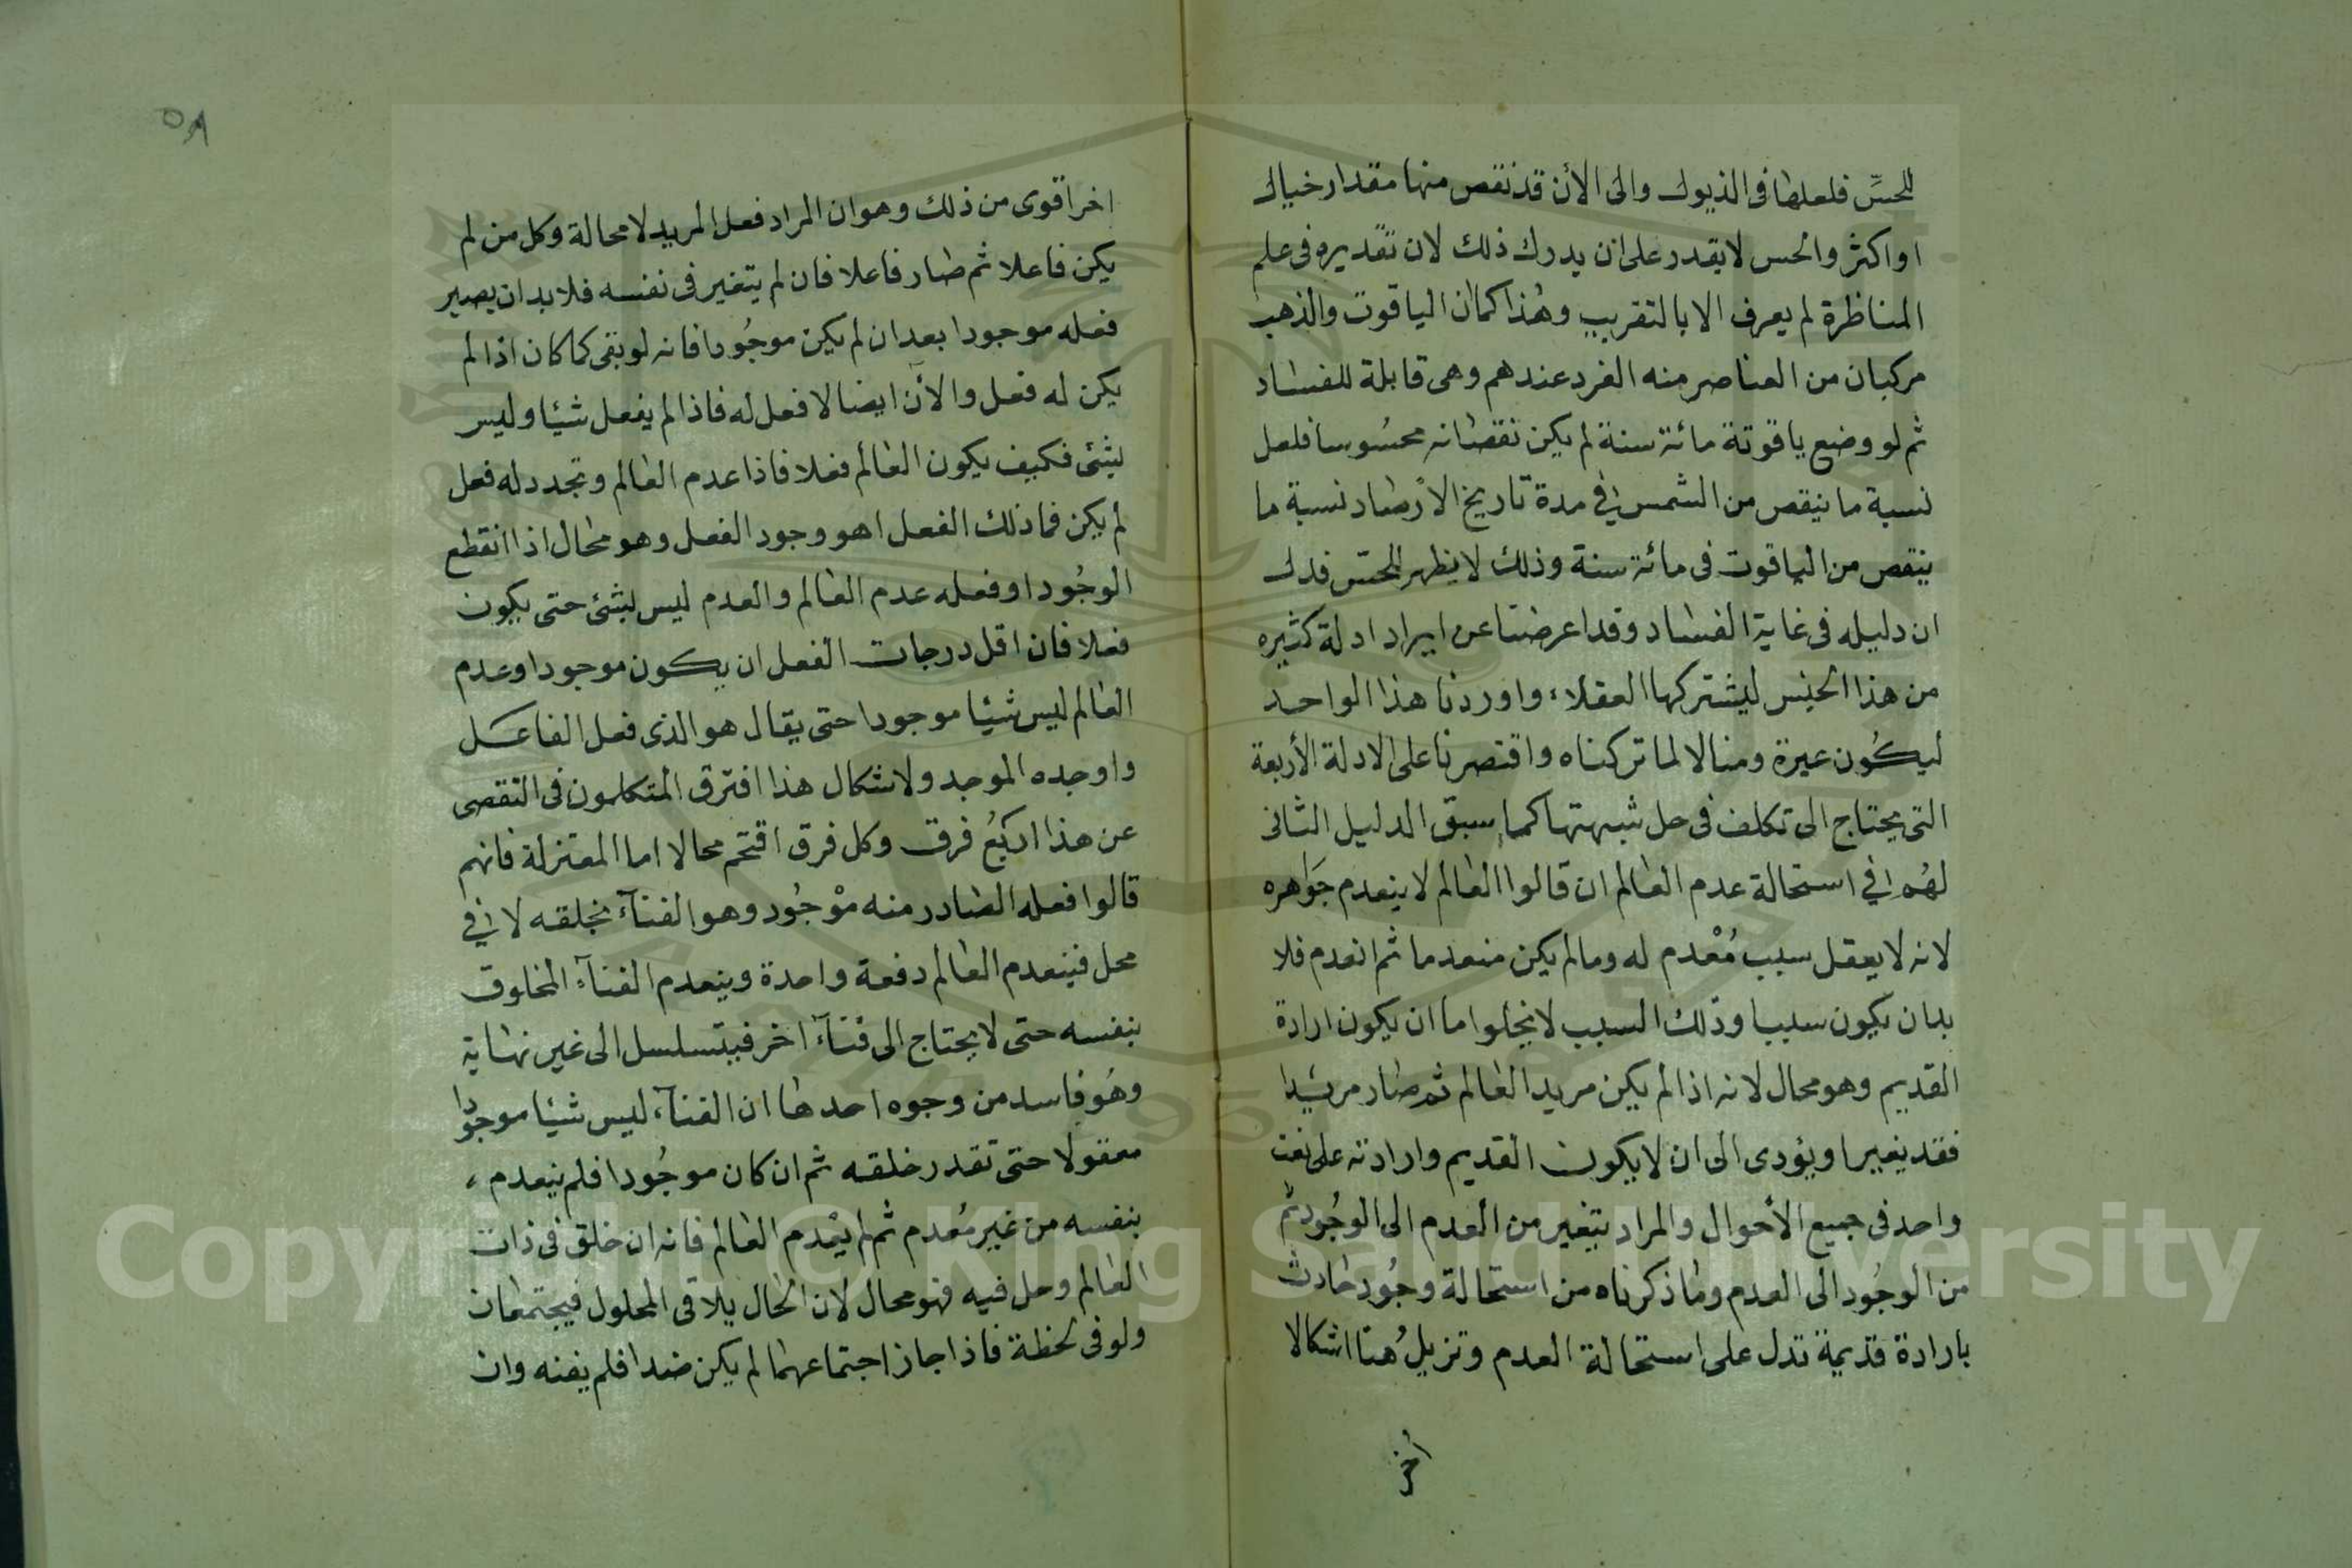 للحسِّ فلعلها في الذبول والى الأن قد نقص منها مقدار خيال
او اكثر والحس لا يقدر على ان يدرك ذلك لان تقديره في علم
المناظرة لم يعرف الا بالتقريب وهذا كما ان الياقوت والذهب
مركبان من العناصر منه الفرد عندهم وهى قابلة للفساد
ثم لو وضع ياقوتة مائة سنة لم يكن نقصانه محسُوسا فلعل
نسبة ما ينقص من الشمس في مدة تاريخ الارصاد نسبة ما
ينقص من الياقوت في مائة سنة وذلك لا يظهر للحسّ فدل
ان دليله في غاية الفساد وقد اعرضنا عن ايراد ادلة كثيره
من هذا الجنس ليشتركها العقلاء واوردنا هذا الواحد
ليكُون عبرة ومثالا لما تركناه واقتصرنا على الادلة الأربعة
التى يحتاج الى تكلف في حل شبهتها كما سبق الدليل الثانى
لهُم في استحالة عدم العالم ان قالوا العالم لا ينعدم جَواهره
لانه لا يعقل سبب مُعْدم له وما لم يكن منعدما ثم انعدم فلا
بدان يكون سببا وذلك السبب لا يخلوا ما ان يكون ارادة
القديم وهو محال لانه اذا لم يكن مريدا لعالم ثم صار مريدا
فقد يغيرا ويؤدى الى ان لا يكون القديم وارادته على نعت
واحد في جميع الأحوال والمراد يتغير من العدم الى الوجُود ثم
من الوجُود الى العدم وما ذكرناه من استحالة وجُود حادث
بارادة قديمة تدل على استحالة العدم وتزيلُ هنا اشكالا
اخر
٥٨
اخر اقوى من ذلك وهو ان المراد فعل المريد لا محالة وكل من لم
يكن فاعلا ثم صار فاعلا فان لم يتغير في نفسه فلا بد ان يصير
فعله موجودا بعد ان لم يكن موجُودا فانه لو بقى كما كان اذا لم
يكن له فعل والأن ايضا لا فعل له فاذا لم يفعل شيئا وليس
بشئ فكيف يكون العالم فعلا فاذا عدم العالم وتجدد له فعل
لم يكن فما ذلك الفعل اهو وجود الفعل وهو محال اذا انقطع
الوجُود او فعله عدم العالم والعدم ليس بشئ حتى يكون
فعلا فان اقل درجات الفعل ان يكون موجودا وعدم
العالم ليس شيئا موجودا حتى يقال هو الذى فعل الفاعل
واوجده الموجد ولاشكال هذا افترق المتكلمون في التقصى
عن هذا اربَعُ فرق وكل فرق اقتحم محالا اما المعتزلة فانهم
قالوا فعله الصادر منه موْجُود وهو الفنآء نخلقه لا في
محل فينعدم العالم دفعة واحدة وينعدم الفنآء المخلوق
بنفسه حتى لا يحتاج الى فنآء اخر فيتسلسل الى غير نهاية
وهُو فاسد من وجوه احدها ان الفنآء ليس شيئا موجودا
معقولا حتى تقدر خلقه ثم ان كان موجُودا فلم ينعدم ،
بنفسه من غير مُعدم ثم لم يعْدم العالم فانه ان خلق في ذات
العالم وحل فيه فهو محال لان الحال يلاقى المحلول فيجتمعان
ولو في لحظة فاذا جاز اجتماعهما لم يكن ضدا فلم يفنه وان
Copyright © King Saud University